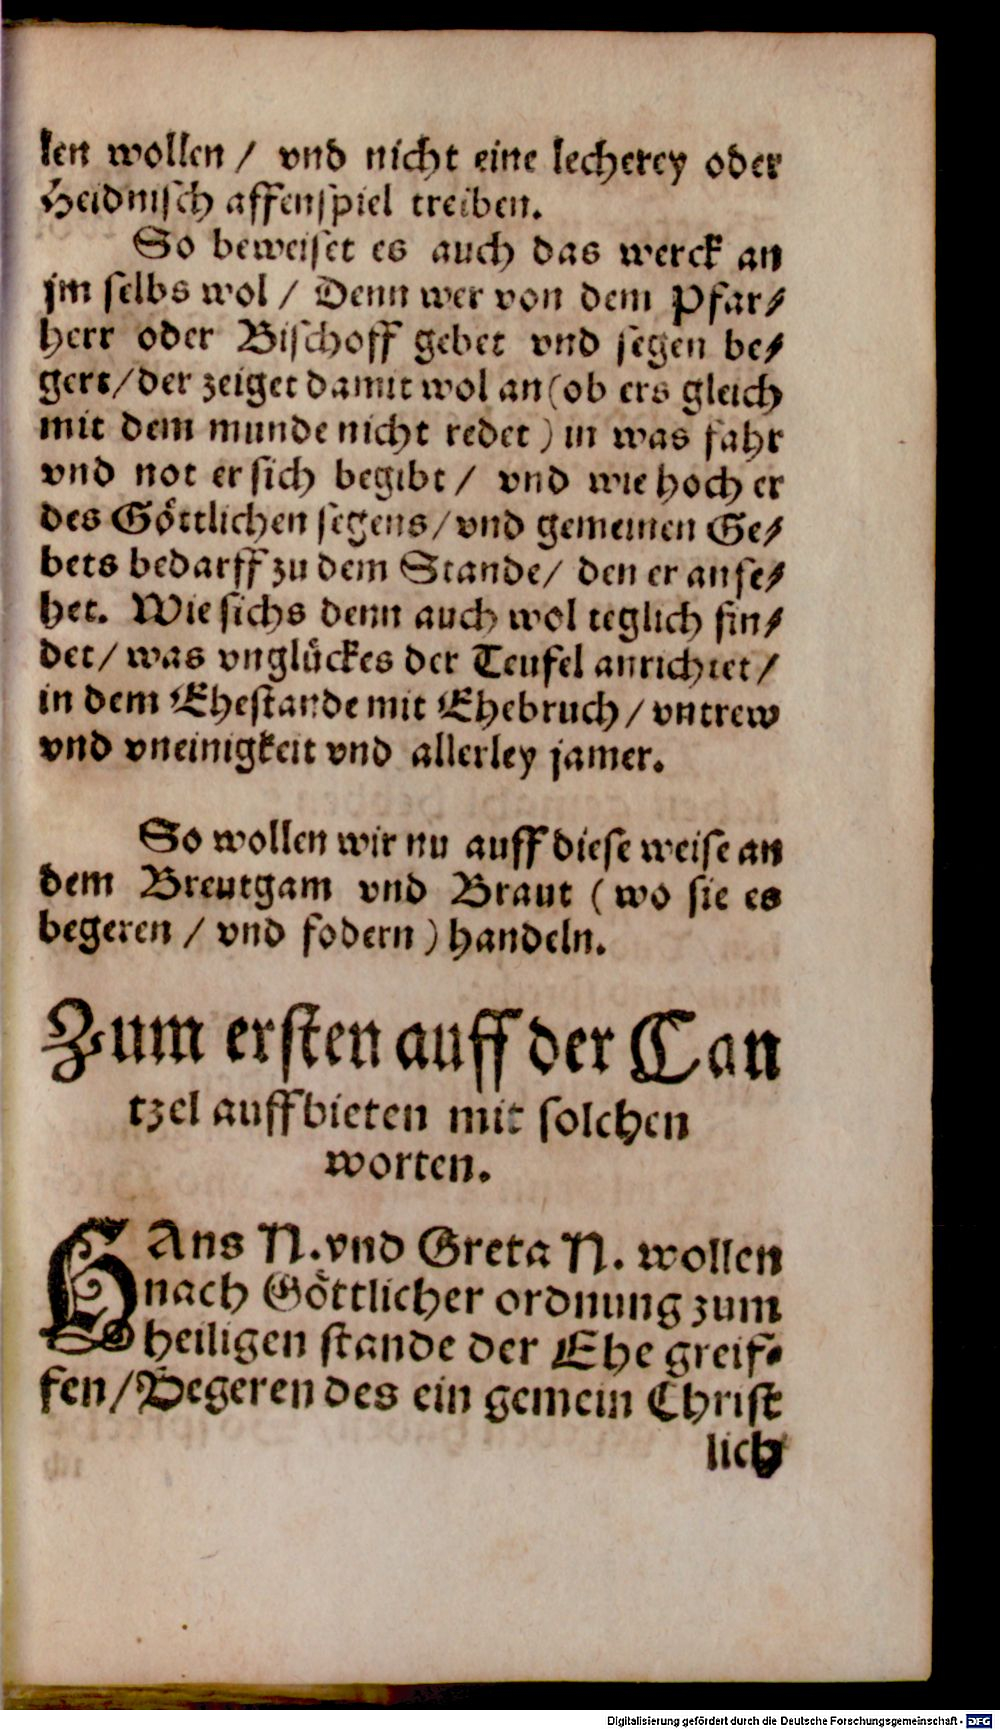 ken wollen / vnd nicht eine lecherey oder
Heidnisch affenspiel treiben.
So beweiset es auch das werck an
jm selbs wol / Denn wer von dem Pfar⸗
herr oder Bischoff gebet vnd segen be⸗
gert/der zeiget damit wol an(ob ers gleich
mit dem munde nicht redet) in was fahr
vnd not er sich begibt / vnd wie hoch er
des Göttlichen segens/vnd gemeinen Ge⸗
bets bedarff zu dem Stande/ den er anfe⸗
het. Wie sichs denn auch wol teglich fin⸗
det/ was vnglückes der Teufel anrichtet/
in dem Ehestande mit Ehebruch/ vntrew
vnd vneinigkeit vnd allerley jamer.
So wollen wir nu auff diese weise an
dem Breutgam vnd Braut ( wo sie es
begeren / vnd fodern ) handeln.
Zum ersten auff der Can
tzel auffbieten mit solchen
worten.
HAns N. vnd Greta N. wollen
nach Göttlicher ordnung zum
heiligen stande der Ehe greif⸗
fen/Begeren des ein gemein Christ
lich
Digitalisierung gefördert durch die Deutsche Forschungsgemeinschaft - DFG